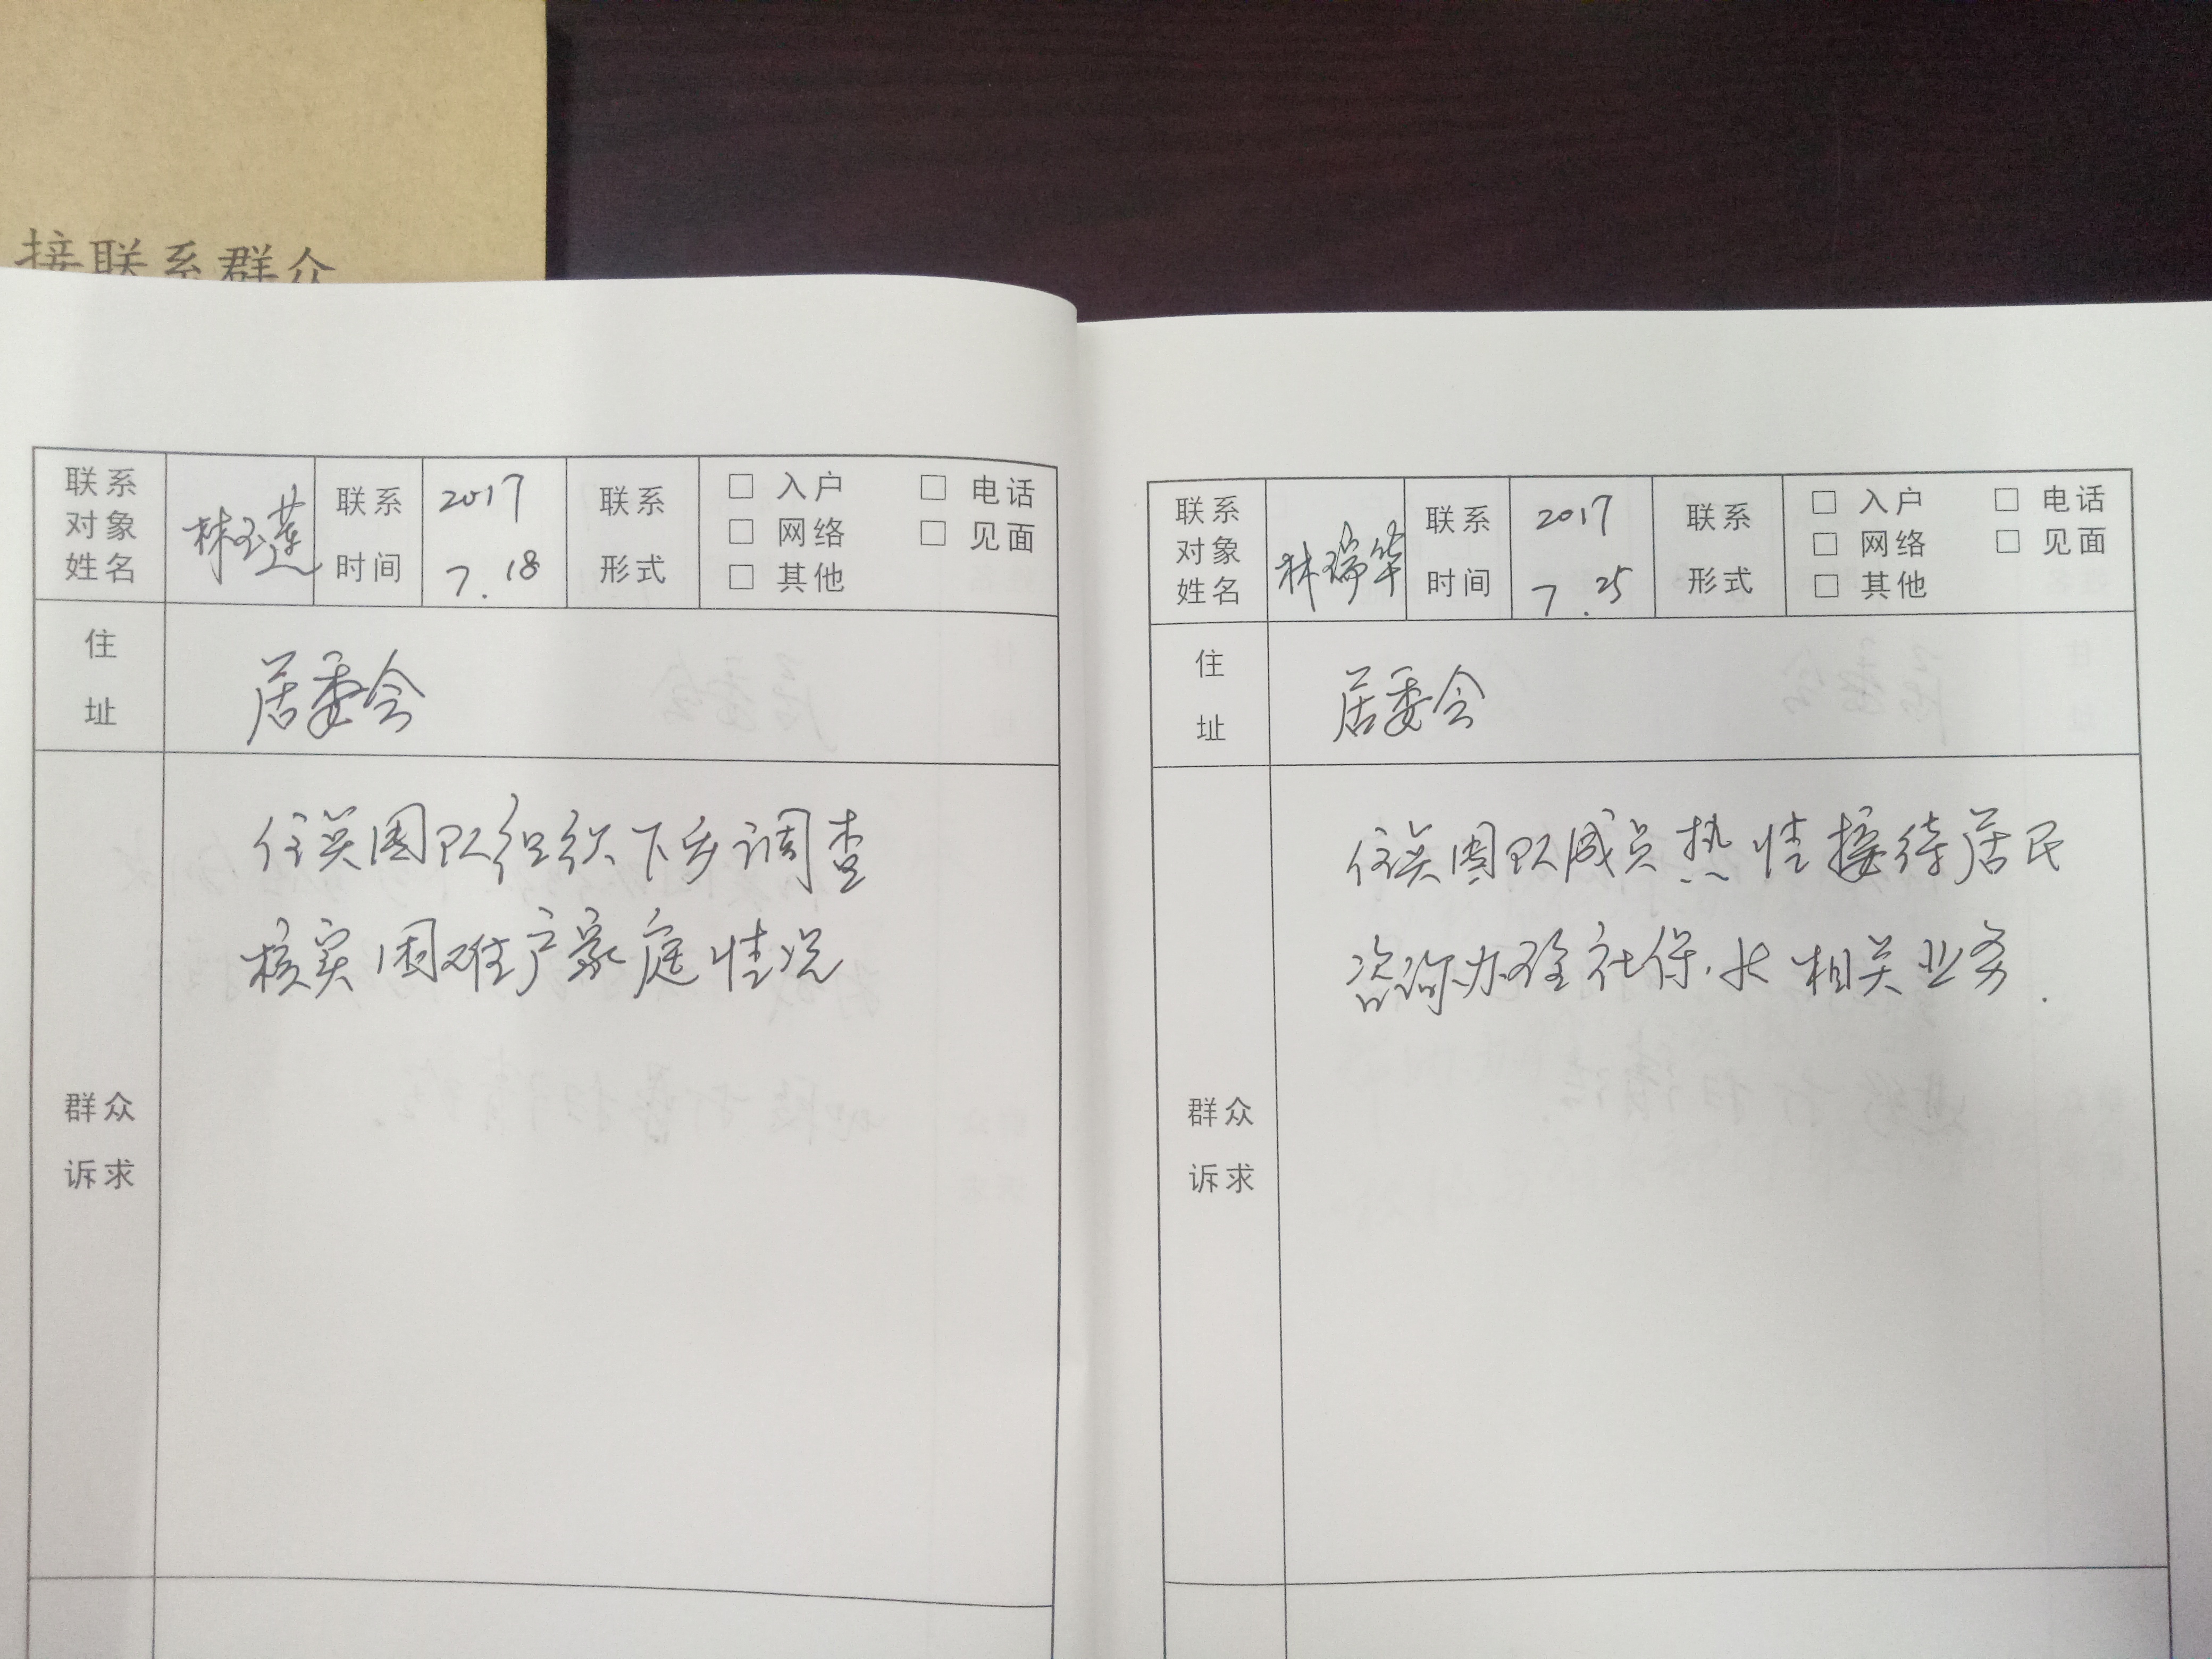 接联系群众
联系
对象
姓名
林玉莲
联系
时间
2017
7.18
联系
形式
□ 入户 □ 电话
□ 网络 □ 见面
□ 其他
住
址
居委会
群众
诉求
住英团队组织下乡调查
核实困难户家庭情况
联系
对象
姓名
林瑞华
联系
时间
2017
7.25
联系
形式
□ 入户 □ 电话
□ 网络 □ 见面
□ 其他
住
址
居委会
群众
诉求
住英团队成员热情接待居民
咨询办理社保.相关业务.